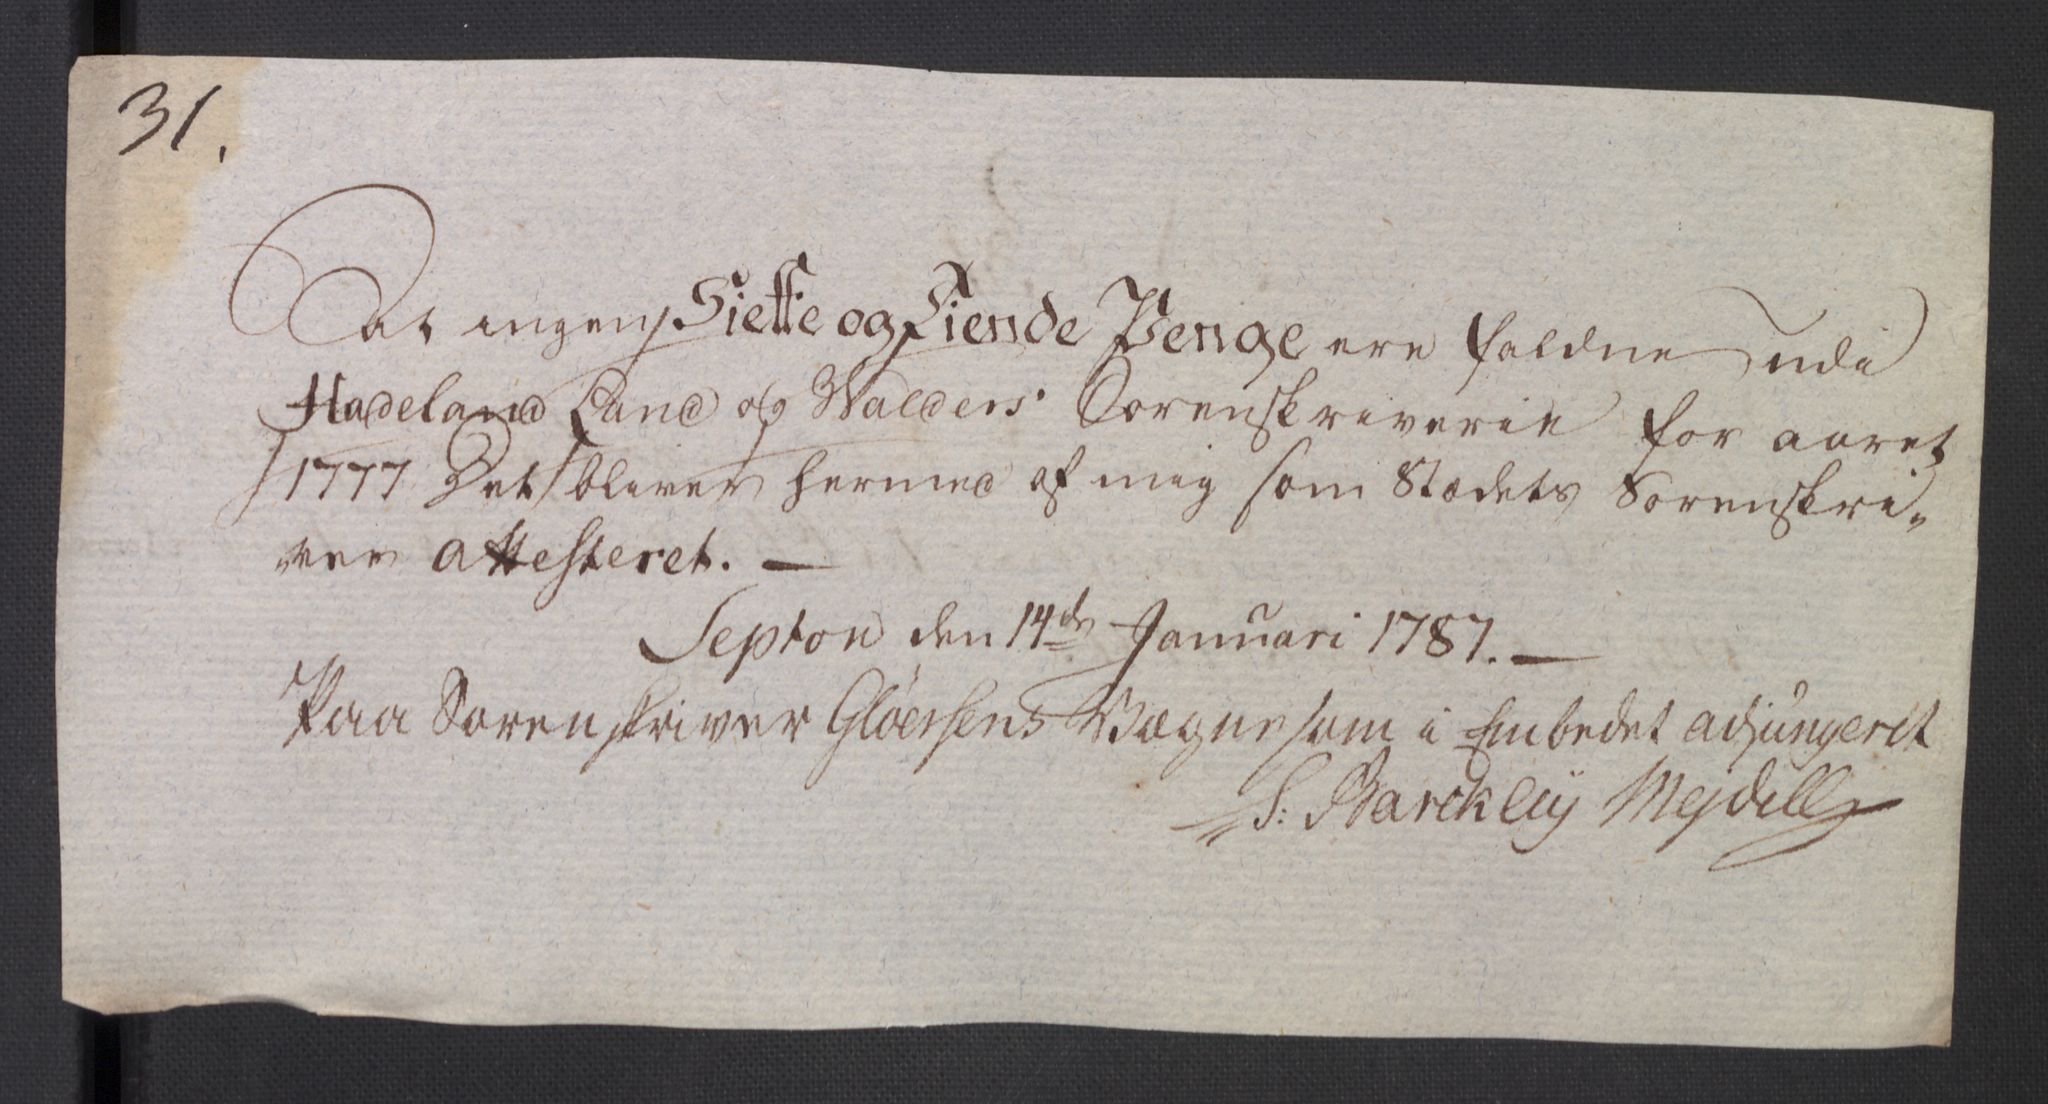 31.
At ingen Siette og Tiende Penge ere faldne udi
Hadeland Land og Walders Sorenskriverie for aaret
1777 Det bliver hermed af mig som Stædets Sorenskri-
ver attesteret. —
Septon den 14de Januari 1787. —
Paa Sorenskriver Glöersens Vægne som i Embedet adjungeret
S: Barckleÿ Mejdell